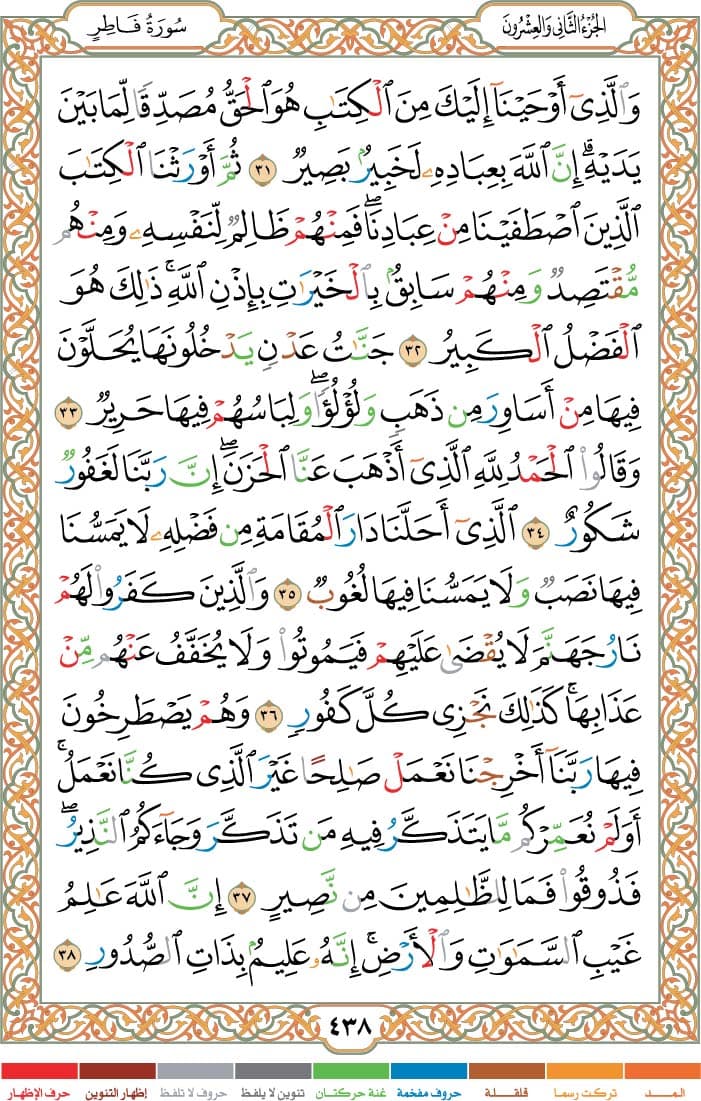 الجُزْءُ الثَّانِي وَالعِشْرُونَ
سُورَةُ فَاطِرٍ
وَٱلَّذِىٓ أَوۡحَيۡنَآ إِلَيۡكَ مِنَ ٱلۡكِتَٰبِ هُوَ ٱلۡحَقُّ مُصَدِّقٗا لِّمَا بَيۡنَ
يَدَيۡهِۗ إِنَّ ٱللَّهَ بِعِبَادِهِۦ لَخَبِيرُۢ بَصِيرٞ ٣١ ثُمَّ أَوۡرَثۡنَا ٱلۡكِتَٰبَ
ٱلَّذِينَ ٱصۡطَفَيۡنَا مِنۡ عِبَادِنَاۖ فَمِنۡهُمۡ ظَالِمٞ لِّنَفۡسِهِۦ وَمِنۡهُم
مُّقۡتَصِدٞ وَمِنۡهُمۡ سَابِقُۢ بِٱلۡخَيۡرَٰتِ بِإِذۡنِ ٱللَّهِۚ ذَٰلِكَ هُوَ
ٱلۡفَضۡلُ ٱلۡكَبِيرُ ٣٢ جَنَّٰتُ عَدۡنٖ يَدۡخُلُونَهَا يُحَلَّوۡنَ
فِيهَا مِنۡ أَسَاوِرَ مِن ذَهَبٖ وَلُؤۡلُؤٗاۖ وَلِبَاسُهُمۡ فِيهَا حَرِيرٞ ٣٣
وَقَالُواْ ٱلۡحَمۡدُ لِلَّهِ ٱلَّذِىٓ أَذۡهَبَ عَنَّا ٱلۡحَزَنَۖ إِنَّ رَبَّنَا لَغَفُورٞ
شَكُورٌ ٣٤ ٱلَّذِىٓ أَحَلَّنَا دَارَ ٱلۡمُقَامَةِ مِن فَضۡلِهِۦ لَا يَمَسُّنَا
فِيهَا نَصَبٞ وَلَا يَمَسُّنَا فِيهَا لُغُوبٞ ٣٥ وَٱلَّذِينَ كَفَرُواْ لَهُمۡ
نَارُ جَهَنَّمَ لَا يُقۡضَىٰ عَلَيۡهِمۡ فَيَمُوتُواْ وَلَا يُخَفَّفُ عَنۡهُم مِّنۡ
عَذَابِهَاۚ كَذَٰلِكَ نَجۡزِى كُلَّ كَفُورٖ ٣٦ وَهُمۡ يَصۡطَرِخُونَ
فِيهَا رَبَّنَآ أَخۡرِجۡنَا نَعۡمَلۡ صَٰلِحًا غَيۡرَ ٱلَّذِى كُنَّا نَعۡمَلُۚ
أَوَلَمۡ نُعَمِّرۡكُم مَّا يَتَذَكَّرُ فِيهِ مَن تَذَكَّرَ وَجَآءَكُمُ ٱلنَّذِيرُۖ
فَذُوقُواْ فَمَا لِلظَّٰلِمِينَ مِن نَّصِيرٍ ٣٧ إِنَّ ٱللَّهَ عَٰلِمُ
غَيۡبِ ٱلسَّمَٰوَٰتِ وَٱلۡأَرۡضِۚ إِنَّهُۥ عَلِيمُۢ بِذَاتِ ٱلصُّدُورِ ٣٨
٤٣٨
المـــد تركت رسما قلقـــلة حروف مفخمة غنة حركتان تنوين لا يلفظ حروف لا تلفظ إظهار التنوين حرف الإظهار